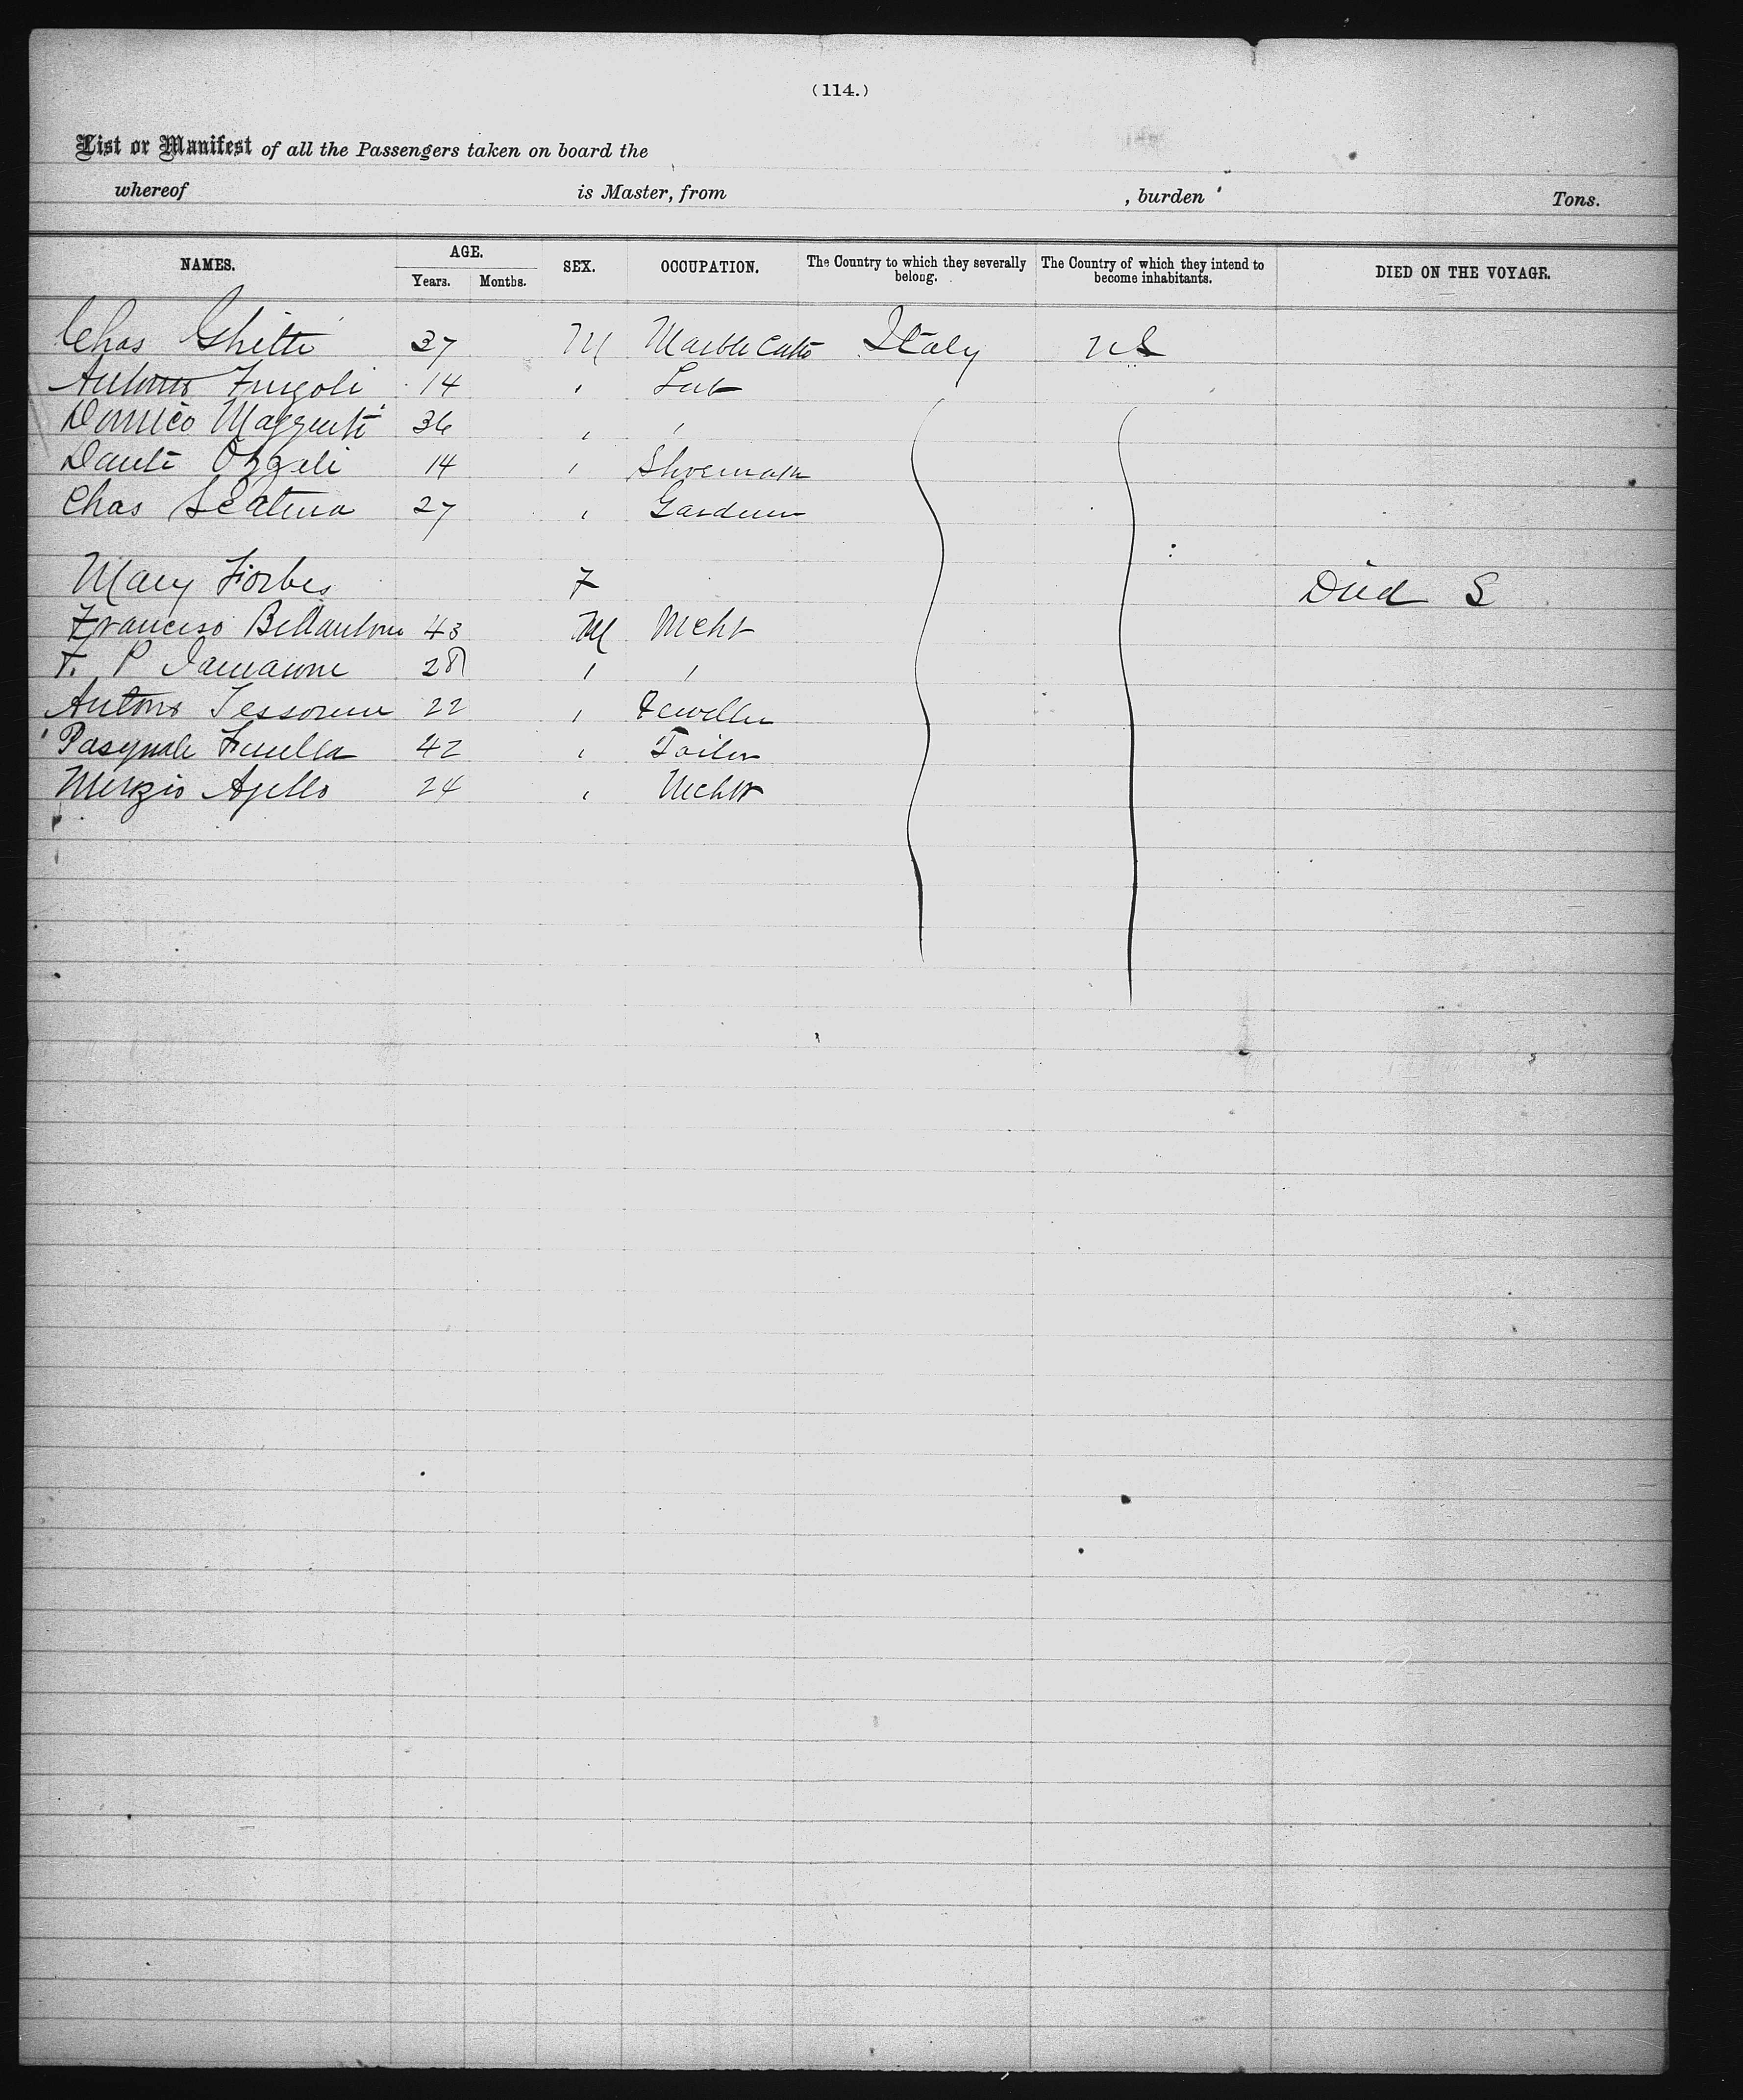 (114.)
List or Manifest of all the Passengers taken on board the
whereof is Master, from , burden Tons.
NAMES. AGE. SEX. OCCUPATION. The Country to which they severally belong. The Country of which they intend to become inhabitants. DIED ON THE VOYAGE.
Years. Months.
Chas Ghitti 37 M Marble Cutt Italy US
Antonio Frugoli 14 "
36 " "
Dante 14 " Shoemak
Chas 27 " Gardner
Mary Forbes F Died S
Francisco Bellantoni 43 M Mcht
F. P 28 " "
Antono 22 " Jeweller
Pasquale 42 " Tailor
Ajello 24 " Mcht